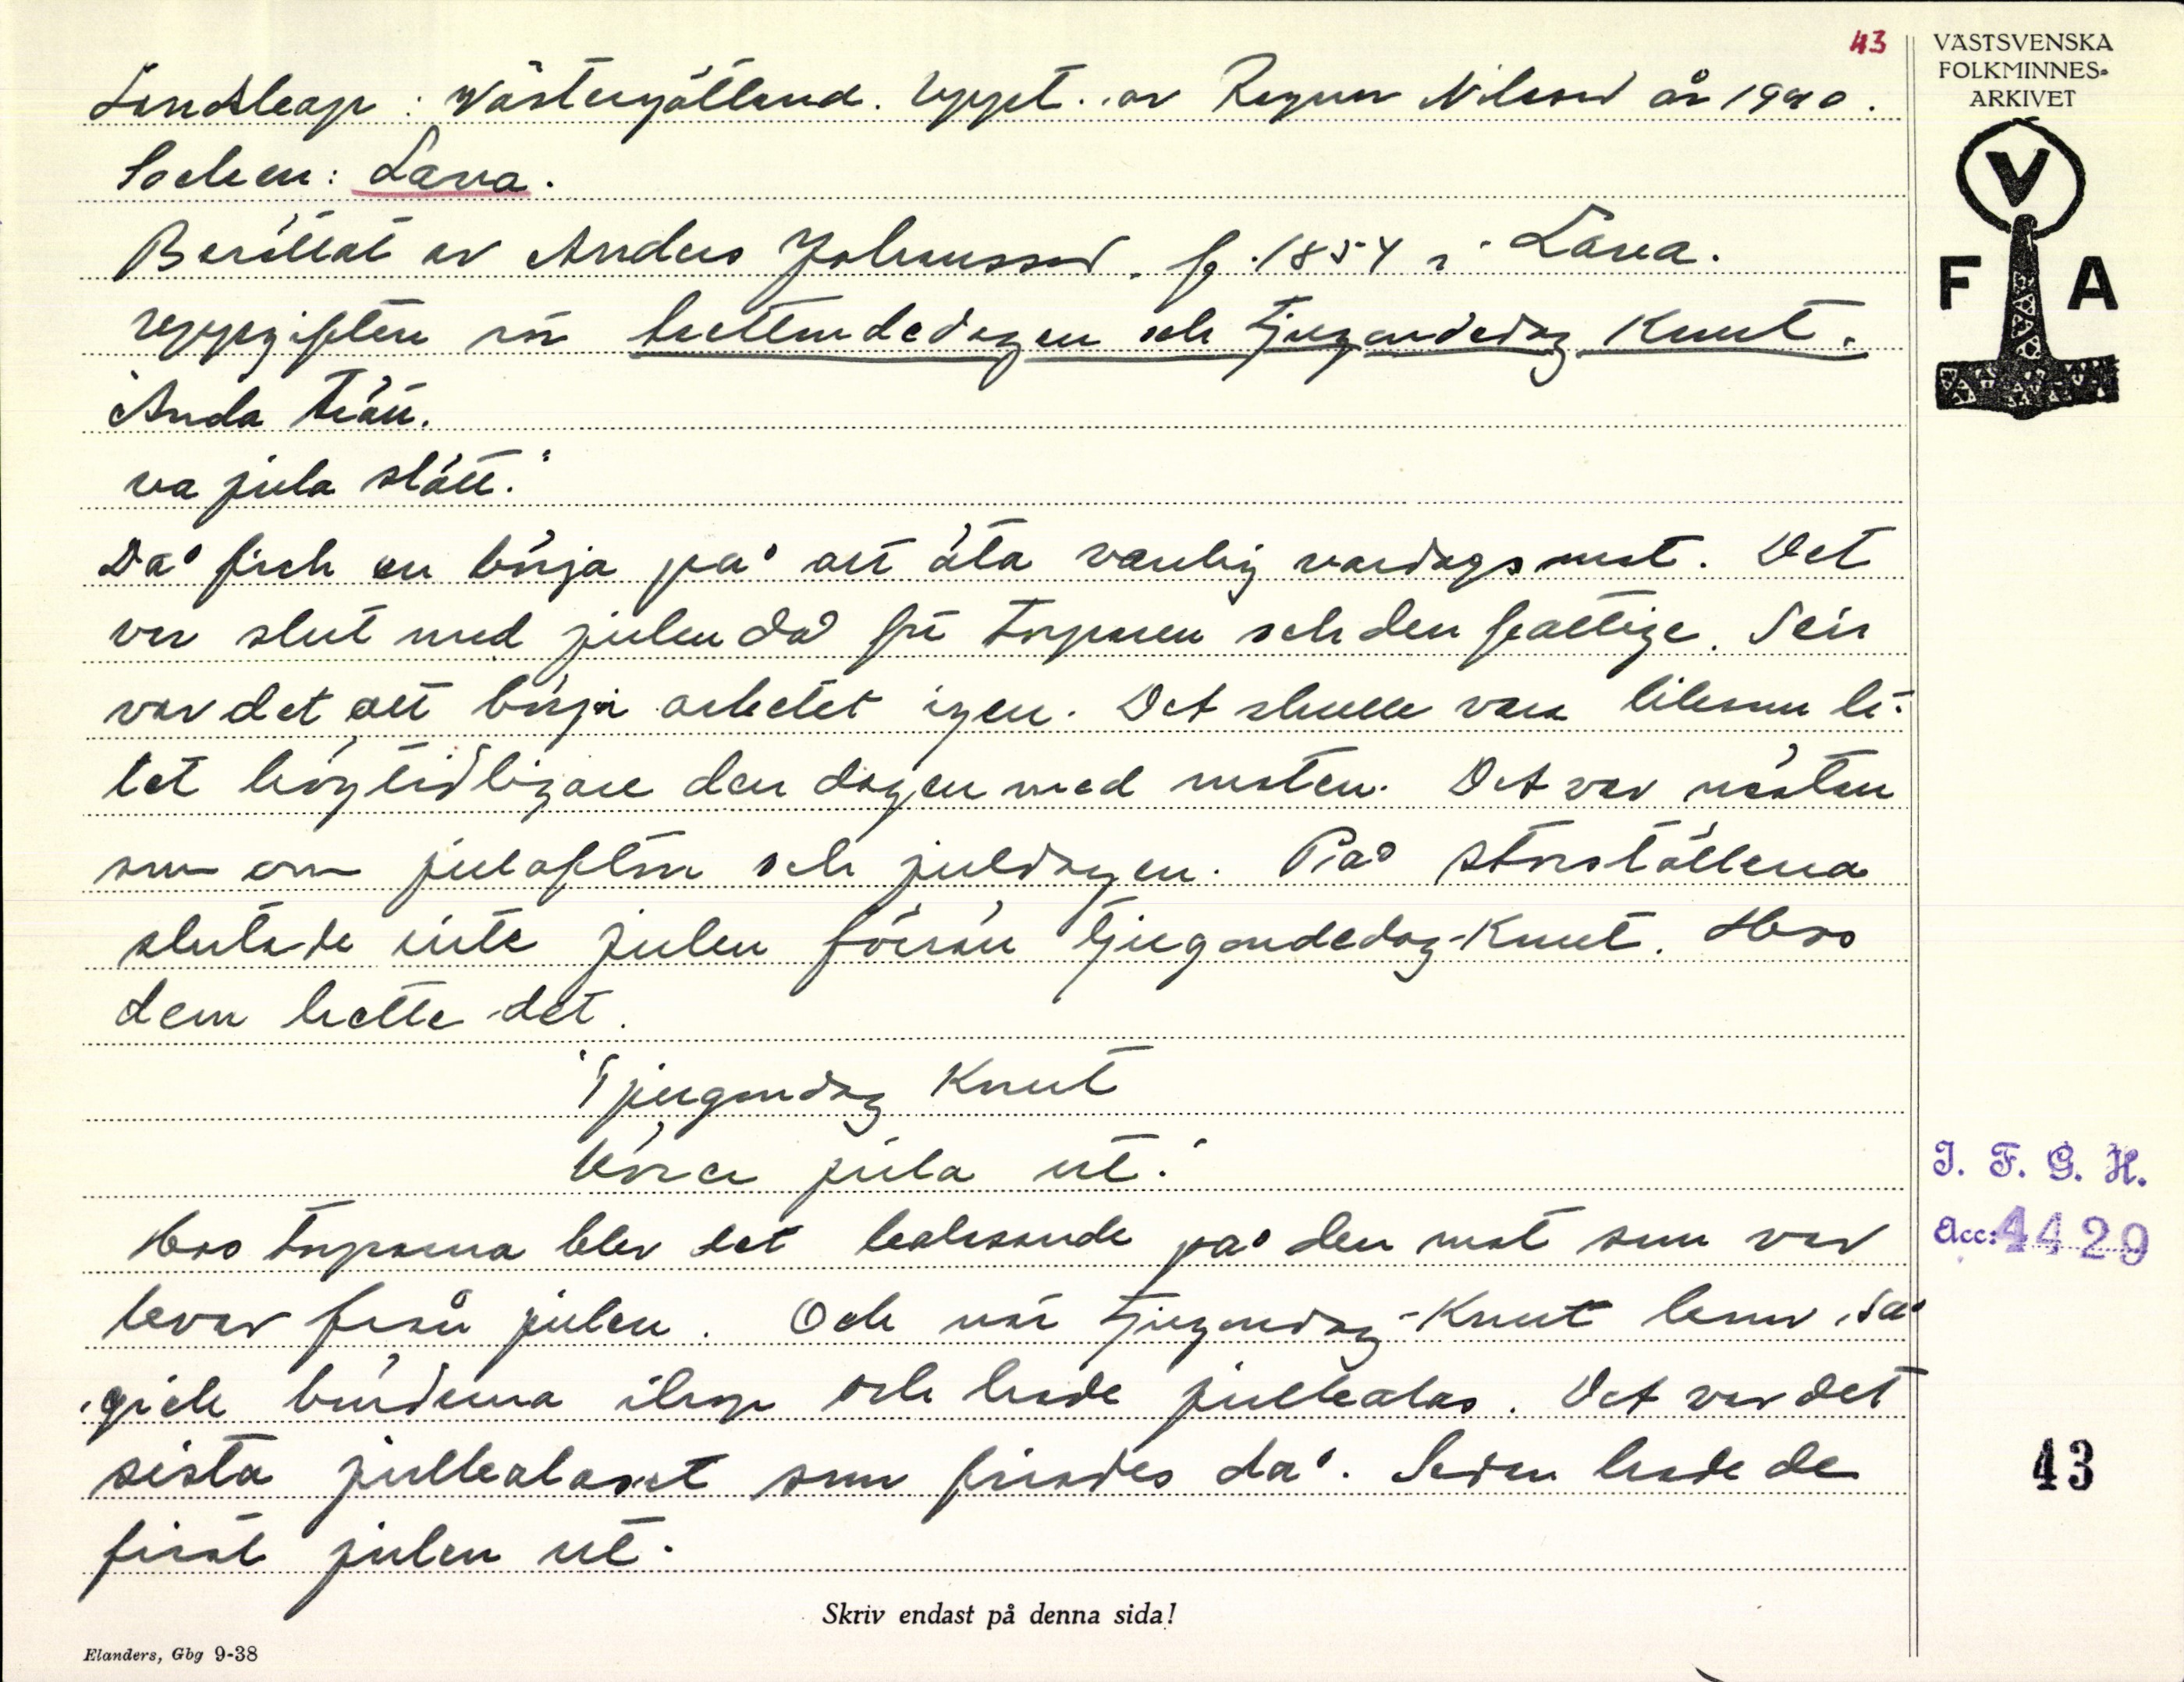 43
VÄSTSVENSKA
FOLKMINNES-
ARKIVET
V
F A
Landskap: Västergötland. Uppt. av Ragnar Nilsson år 1940.
Socken: Larva.
Berättat av Anders Johansson. f. 1854 i Larva.
uppgiften rör trettondedagen och tjugondedag Knut.
"Anda trätt.
va jula slätt."
Då fick en börja på att äta vanlig vardagsmat. Det
var slut med julen då för torparen och den fattige. Sen
var det att börja arbetet igen. Det skulle vara liksom li-
tet högtidligare den dagen med maten. Det var nästan
som om julafton och juldagen. På storställena
slutade inte julen förrän tjugondedag-Knut. Hos
dem hette det.
"Tjugondag Knut
köres jula ut."
Hos torparna blev det kalasande på den mat som var
kvar från julen. Och när tjugondag-Knut kom så
gick bönderna ihop och hade julkalas. Det var det
sista julkalaset som firades då. Sedan hade de
firat julen ut.
Skriv endast på denna sida!
Elanders, Gbg 9-38
I. F. G. H.
Acc: 4429
43